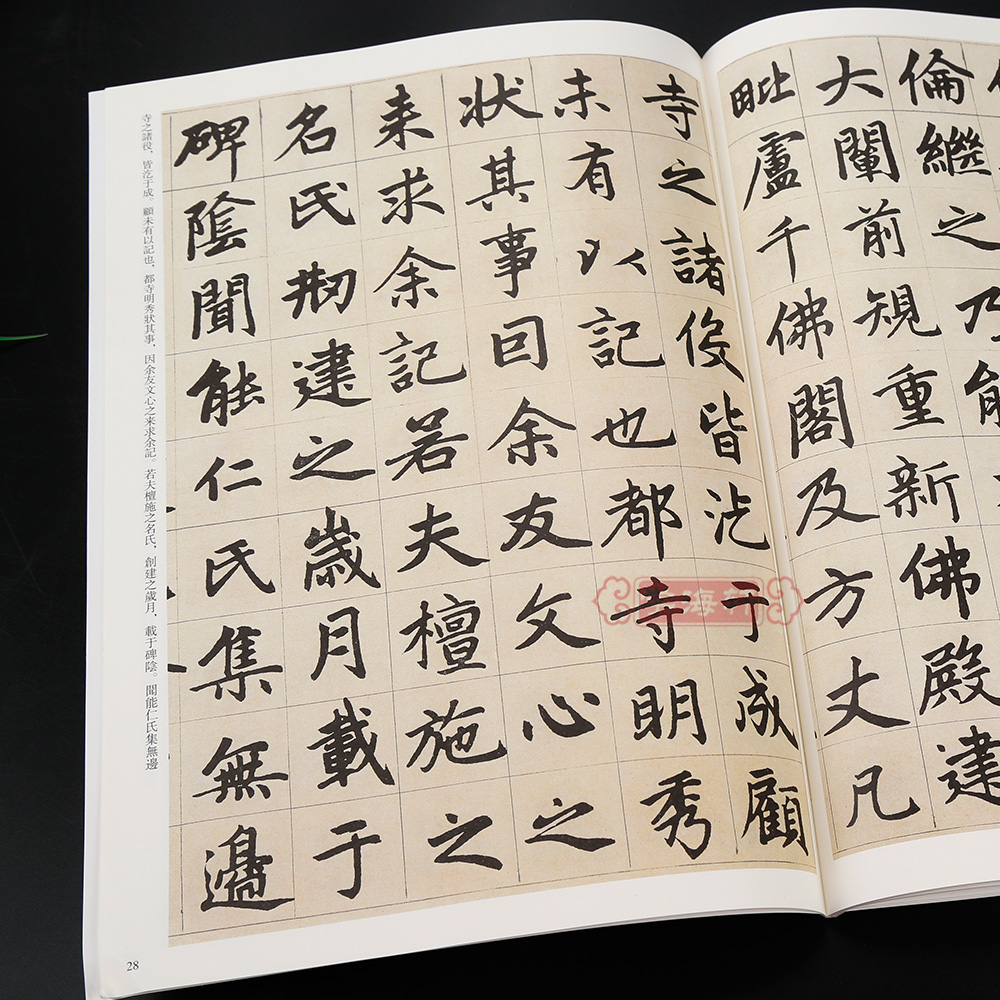 倫繼之乃能
大闡前規重新佛殿建
毗盧千佛閣及方丈凡
寺之諸役皆汔于成顧
未有以記也都寺明秀
狀其事囙余友文心之
耒求余記若夫檀施之
名氏剏建之歲月載于
碑陰聞能仁氏集無邊
寺之諸役，皆汔于成。顧未有以記也，都寺明秀狀其事，因余友文心之来求余記。若夫檀施之名氏，創建之歲月，載于碑陰。聞能仁氏集無邊
28